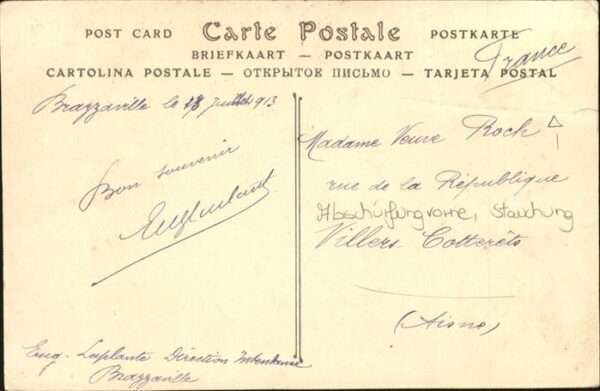 POST CARD Carte Postale POSTKARTE
BRIEFKAART — POSTKAART
CARTOLINA POSTALE — ОТКРЫТОЕ ПИСЬМО — TARJETA POSTAL
France
Brazzaville le 18 Juillet 913
Bon souvenir
Madame Veuve Roch
rue de la République
Abschürfung vorne, Stauchung
Villers Cotterêts
(Aisne)
Eug. Laplante Direction Intendance
Brazzaville